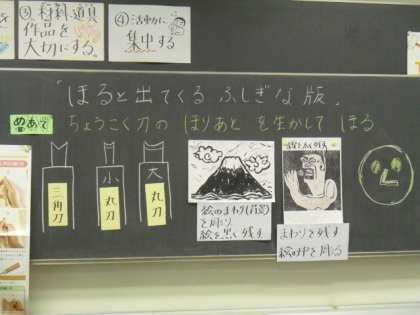 ③材料、道具
作品を
大切にする。
④活動に
集中する
「ほると出てくる ふしぎな版」
めあて
ちょうこく刀の ほりあと を生かして ほる
三角刀
小 丸刀
大 丸刀
絵のまわり(背景)
を周り
絵を黒く残す
まわりを残す
絵の中を周る